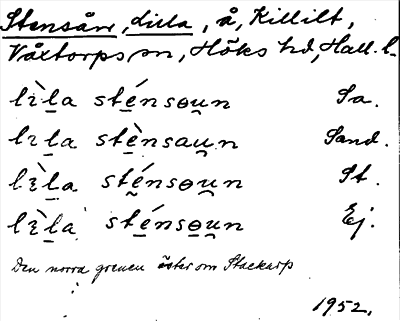 Stensån, Lilla, å, Killilt,
Våxtorps sn, Höks hd, Hall. l.
lɪ̀l̲a sté̲nsɵu̯n Sa.
lɪl̲a stè̲nsau̯n Sand.
lɪ̀l̲a sté̲nsɵu̯n St.
lɪ̀l̲a sté̲nsɵ̲u̯n Ej.
Den norra grenen öster om Stackarp
1952.